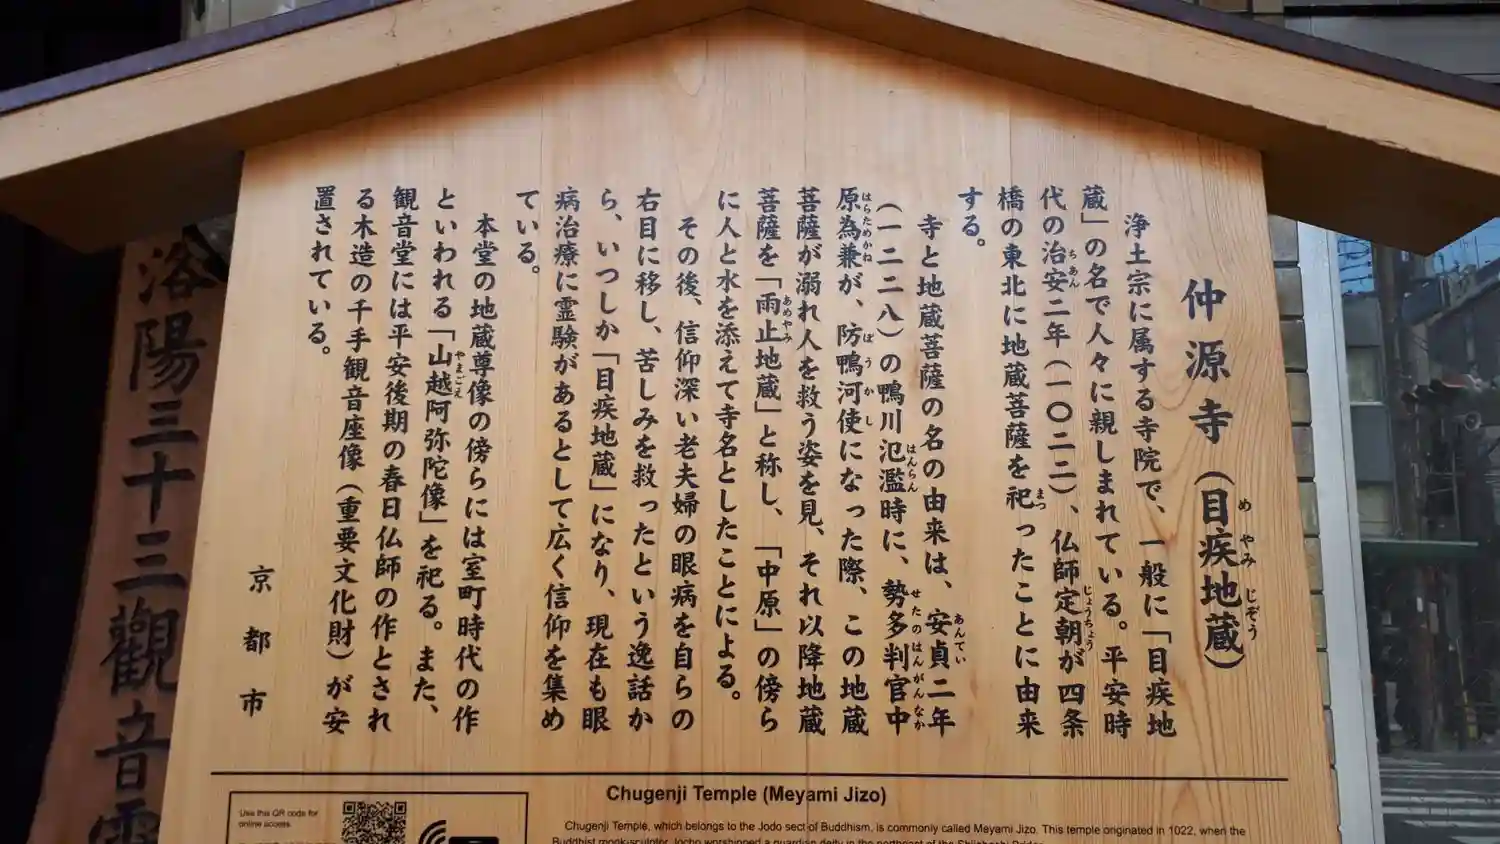 仲源寺(目疾地蔵)
め やみ じぞう
浄土宗に属する寺院で、一般に「目疾地
蔵」の名で人々に親しまれている。平安時
代の治安二年(一〇二二)、仏師定朝が四条
ちあん じょうちょう
橋の東北に地蔵菩薩を祀ったことに由来
まつ
する。
寺と地蔵菩薩の名の由来は、安貞二年
あんてい
(一二二八)の鴨川氾濫時に、勢多判官中
はんらん せたのはんがんなか
原為兼が、防鴨河使になった際、この地蔵
はらためかね ぼうかし
菩薩が溺れ人を救う姿を見、それ以降地蔵
菩薩を「雨止地蔵」と称し、「中原」の傍ら
あめやみ
に人と水を添えて寺名としたことによる。
その後、信仰深い老夫婦の眼病を自らの
右目に移し、苦しみを救ったという逸話か
ら、いつしか「目疾地蔵」になり、現在も眼
病治療に霊験があるとして広く信仰を集め
ている。
本堂の地蔵尊像の傍らには室町時代の作
といわれる「山越阿弥陀像」を祀る。また、
やまごえ
観音堂には平安後期の春日仏師の作とされ
る木造の千手観音座像(重要文化財)が安
置されている。
京都市
洛陽三十三觀音霊
Chugenji Temple (Meyami Jizo)
Use this QR code for
online access.
Chugenji Temple, which belongs to the Jodo sect of Buddhism, is commonly called Meyami Jizo. This temple originated in 1022, when the
Buddhist monk-sculptor Jocho worshipped a guardian deity in the northeast of the Shijohashi Bridge.